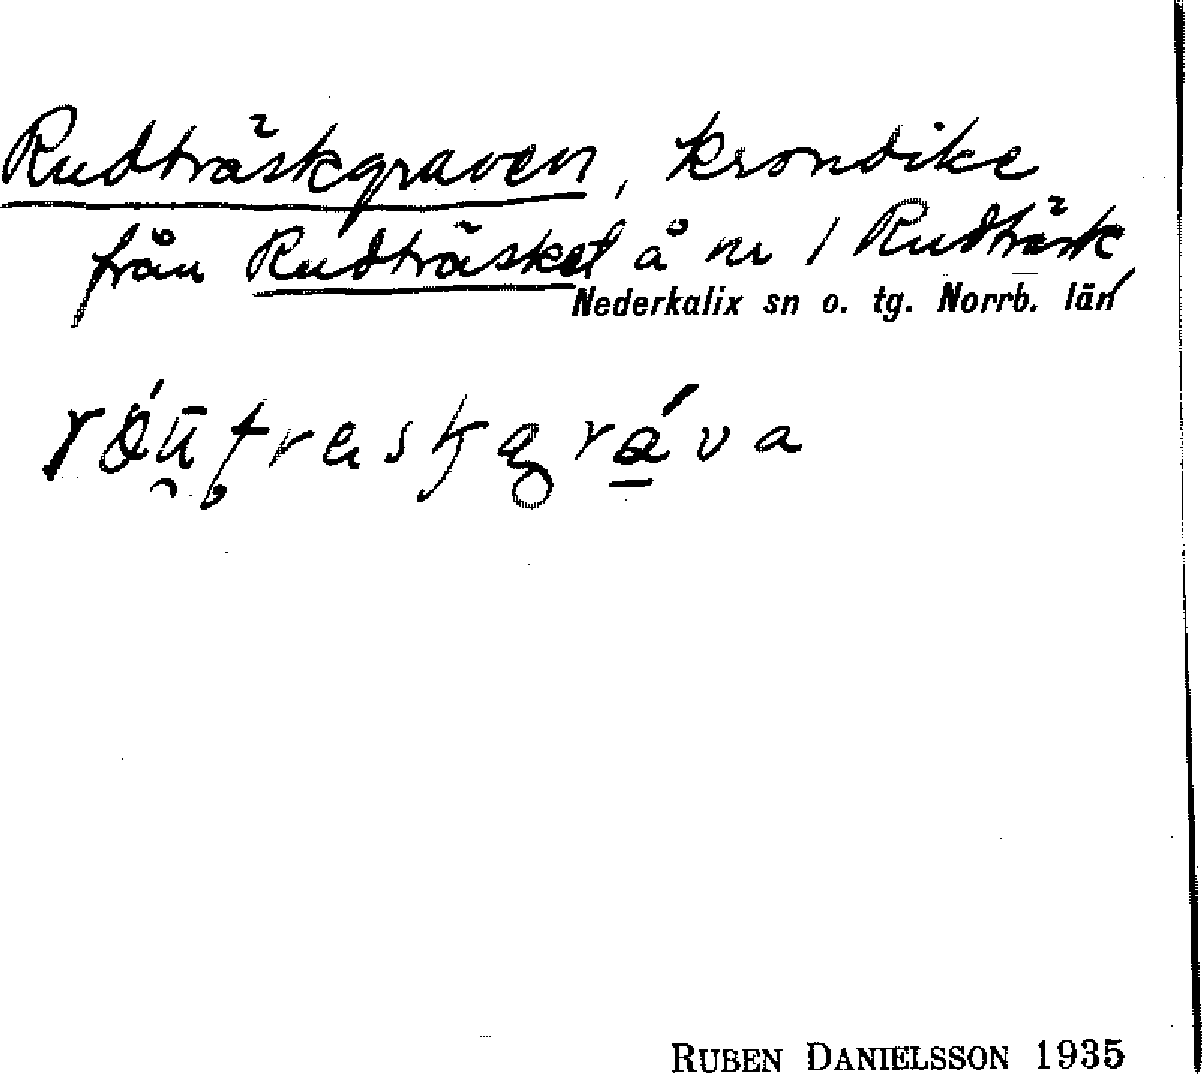 Rudträskgraven, krondike
från Rudträsket å nr 1 Rudträsk
Nederkalix sn o. tg. Norrb. län
RUBEN DANIELSSON 1935